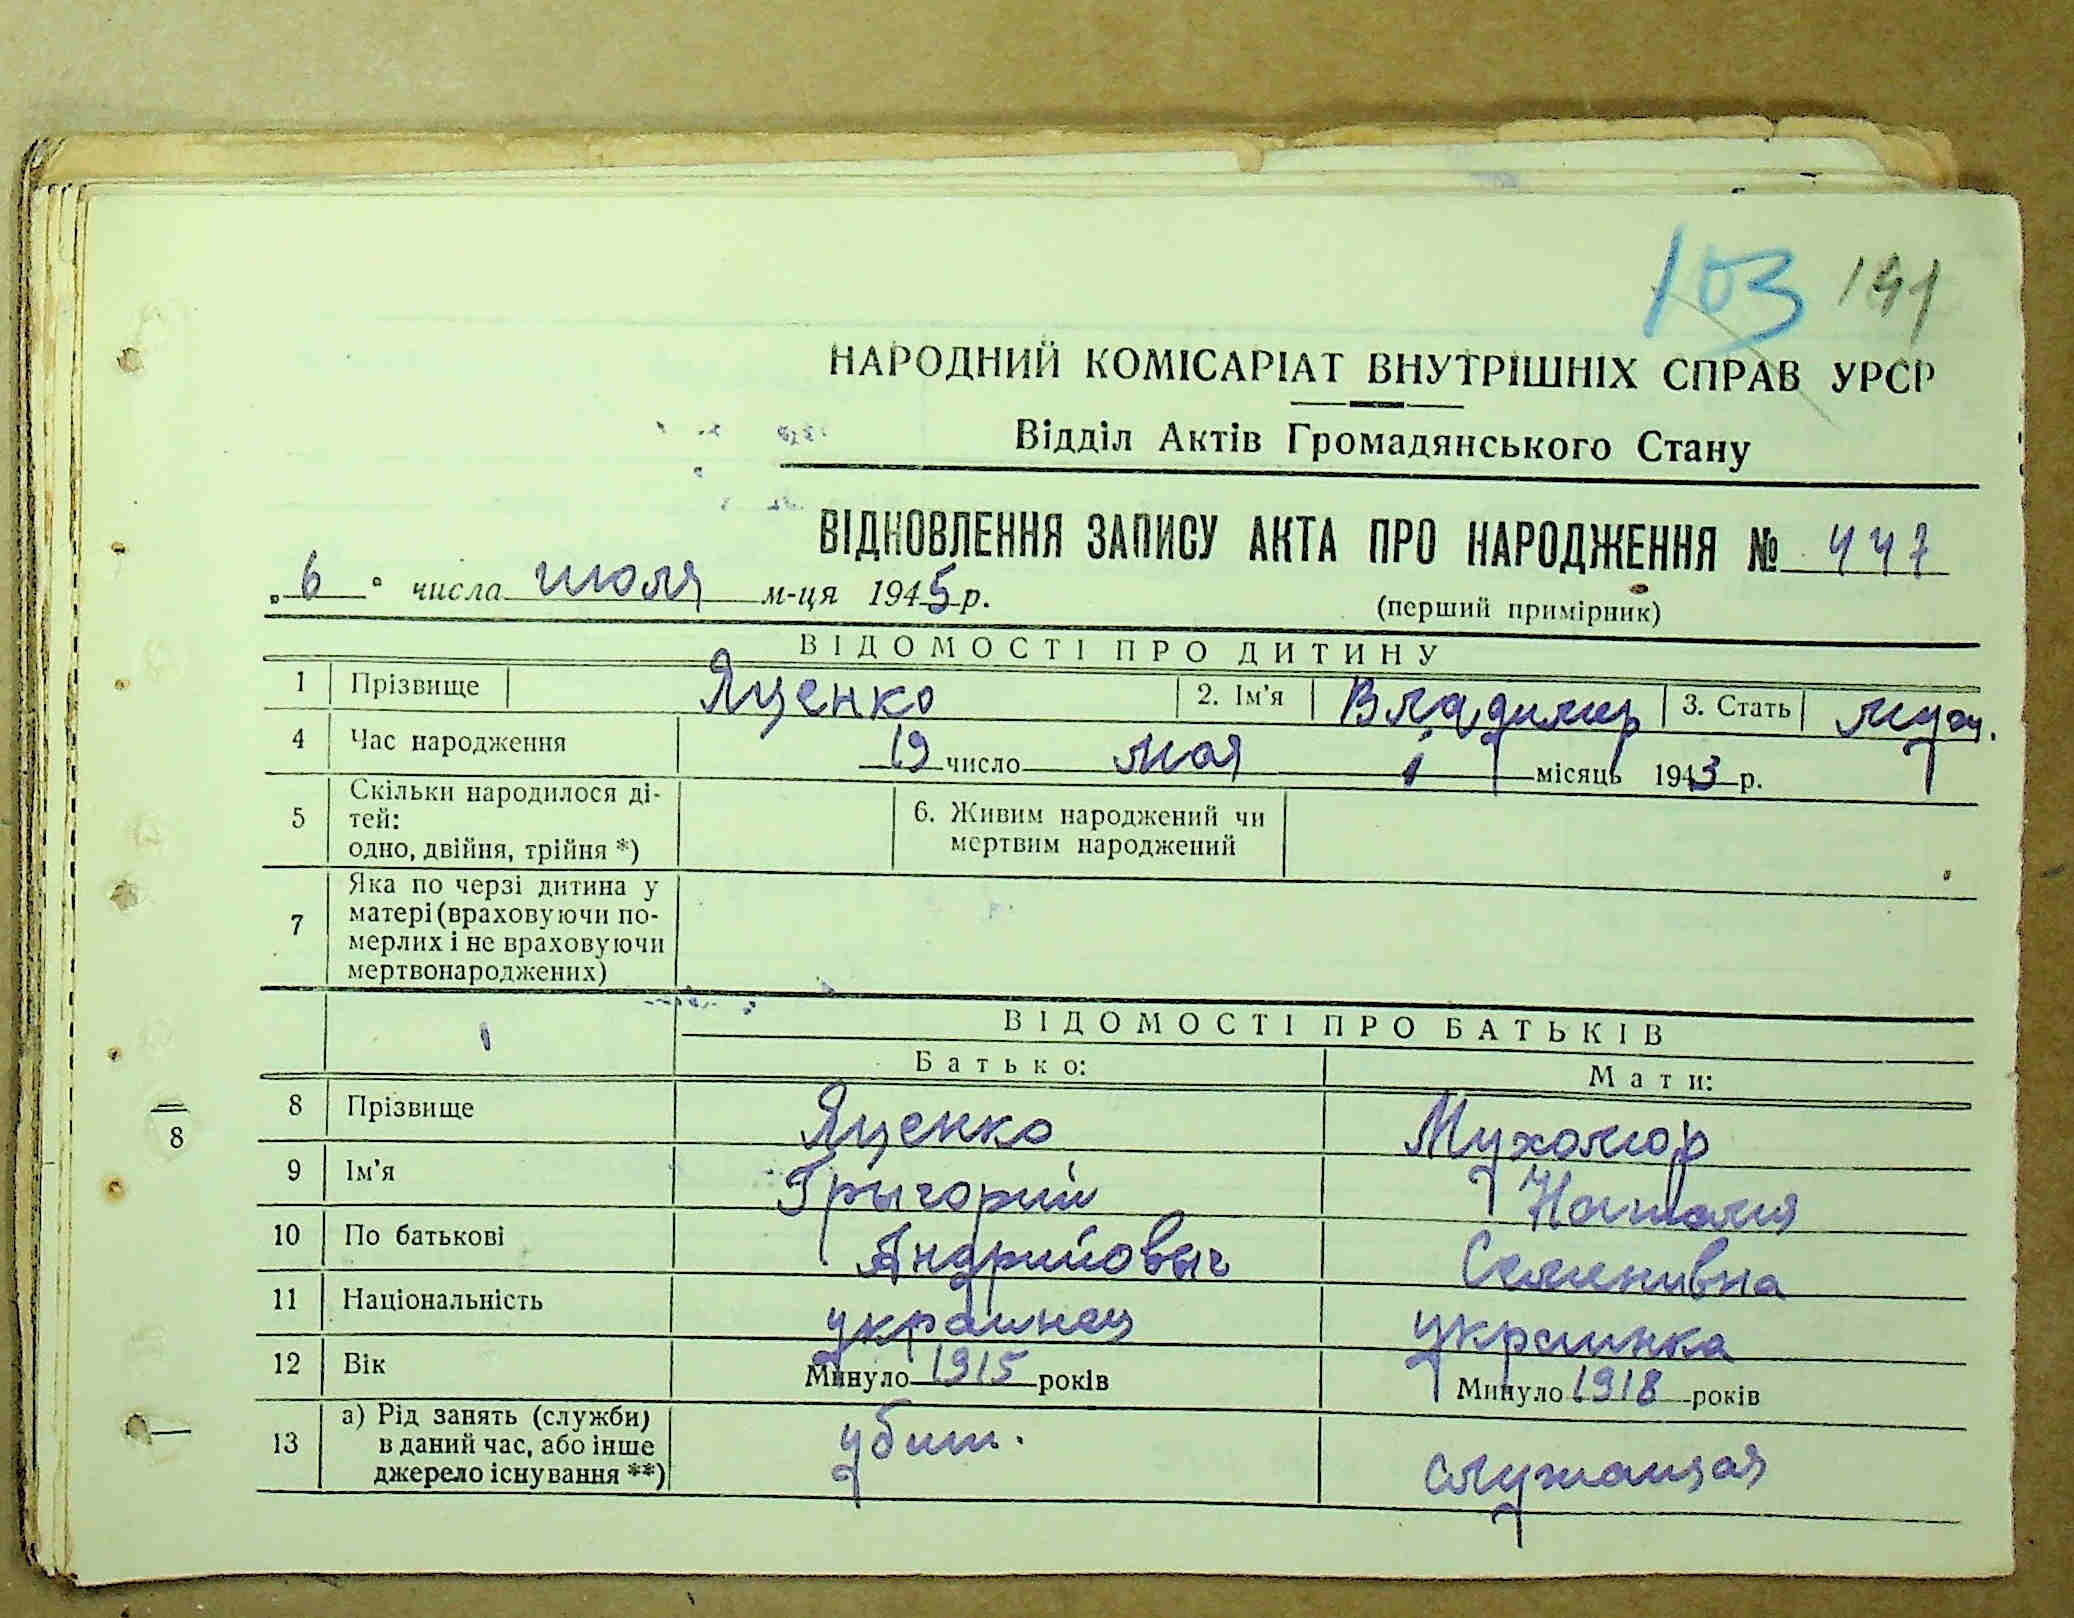 103 191
НАРОДНИЙ КОМІСАРІАТ ВНУТРІШНІХ СПРАВ УРСР
Відділ Актів Громадянського Стану
ВІДНОВЛЕННЯ ЗАПИСУ АКТА ПРО НАРОДЖЕННЯ № 447
„6" числа июля м-ця 1945 р.
(перший примірник)
ВІДОМОСТІ ПРО ДИТИНУ
1 Прізвище Яценко 2. Ім'я Владимир 3. Стать муж.
4 Час народження 19 число мая місяць 1943 р.
5 Скільки народилося ді-
тей:
одно, двійня, трійня *)
6. Живим народжений чи
мертвим народжений
7 Яка по черзі дитина у
матері (враховуючи по-
мерлих і не враховуючи
мертвонароджених)
ВІДОМОСТІ ПРО БАТЬКІВ
Батько: Мати:
8 Прізвище Яценко Мухомор
9 Ім'я Грыгорий Наталия
10 По батькові Андрийовыч Семенивна
11 Національність украинец украинка
12 Вік Минуло 1915 років Минуло 1918 років
13 а) Рід занять (служби)
в даний час, або інше
джерело існування **)
убит. служащая
8